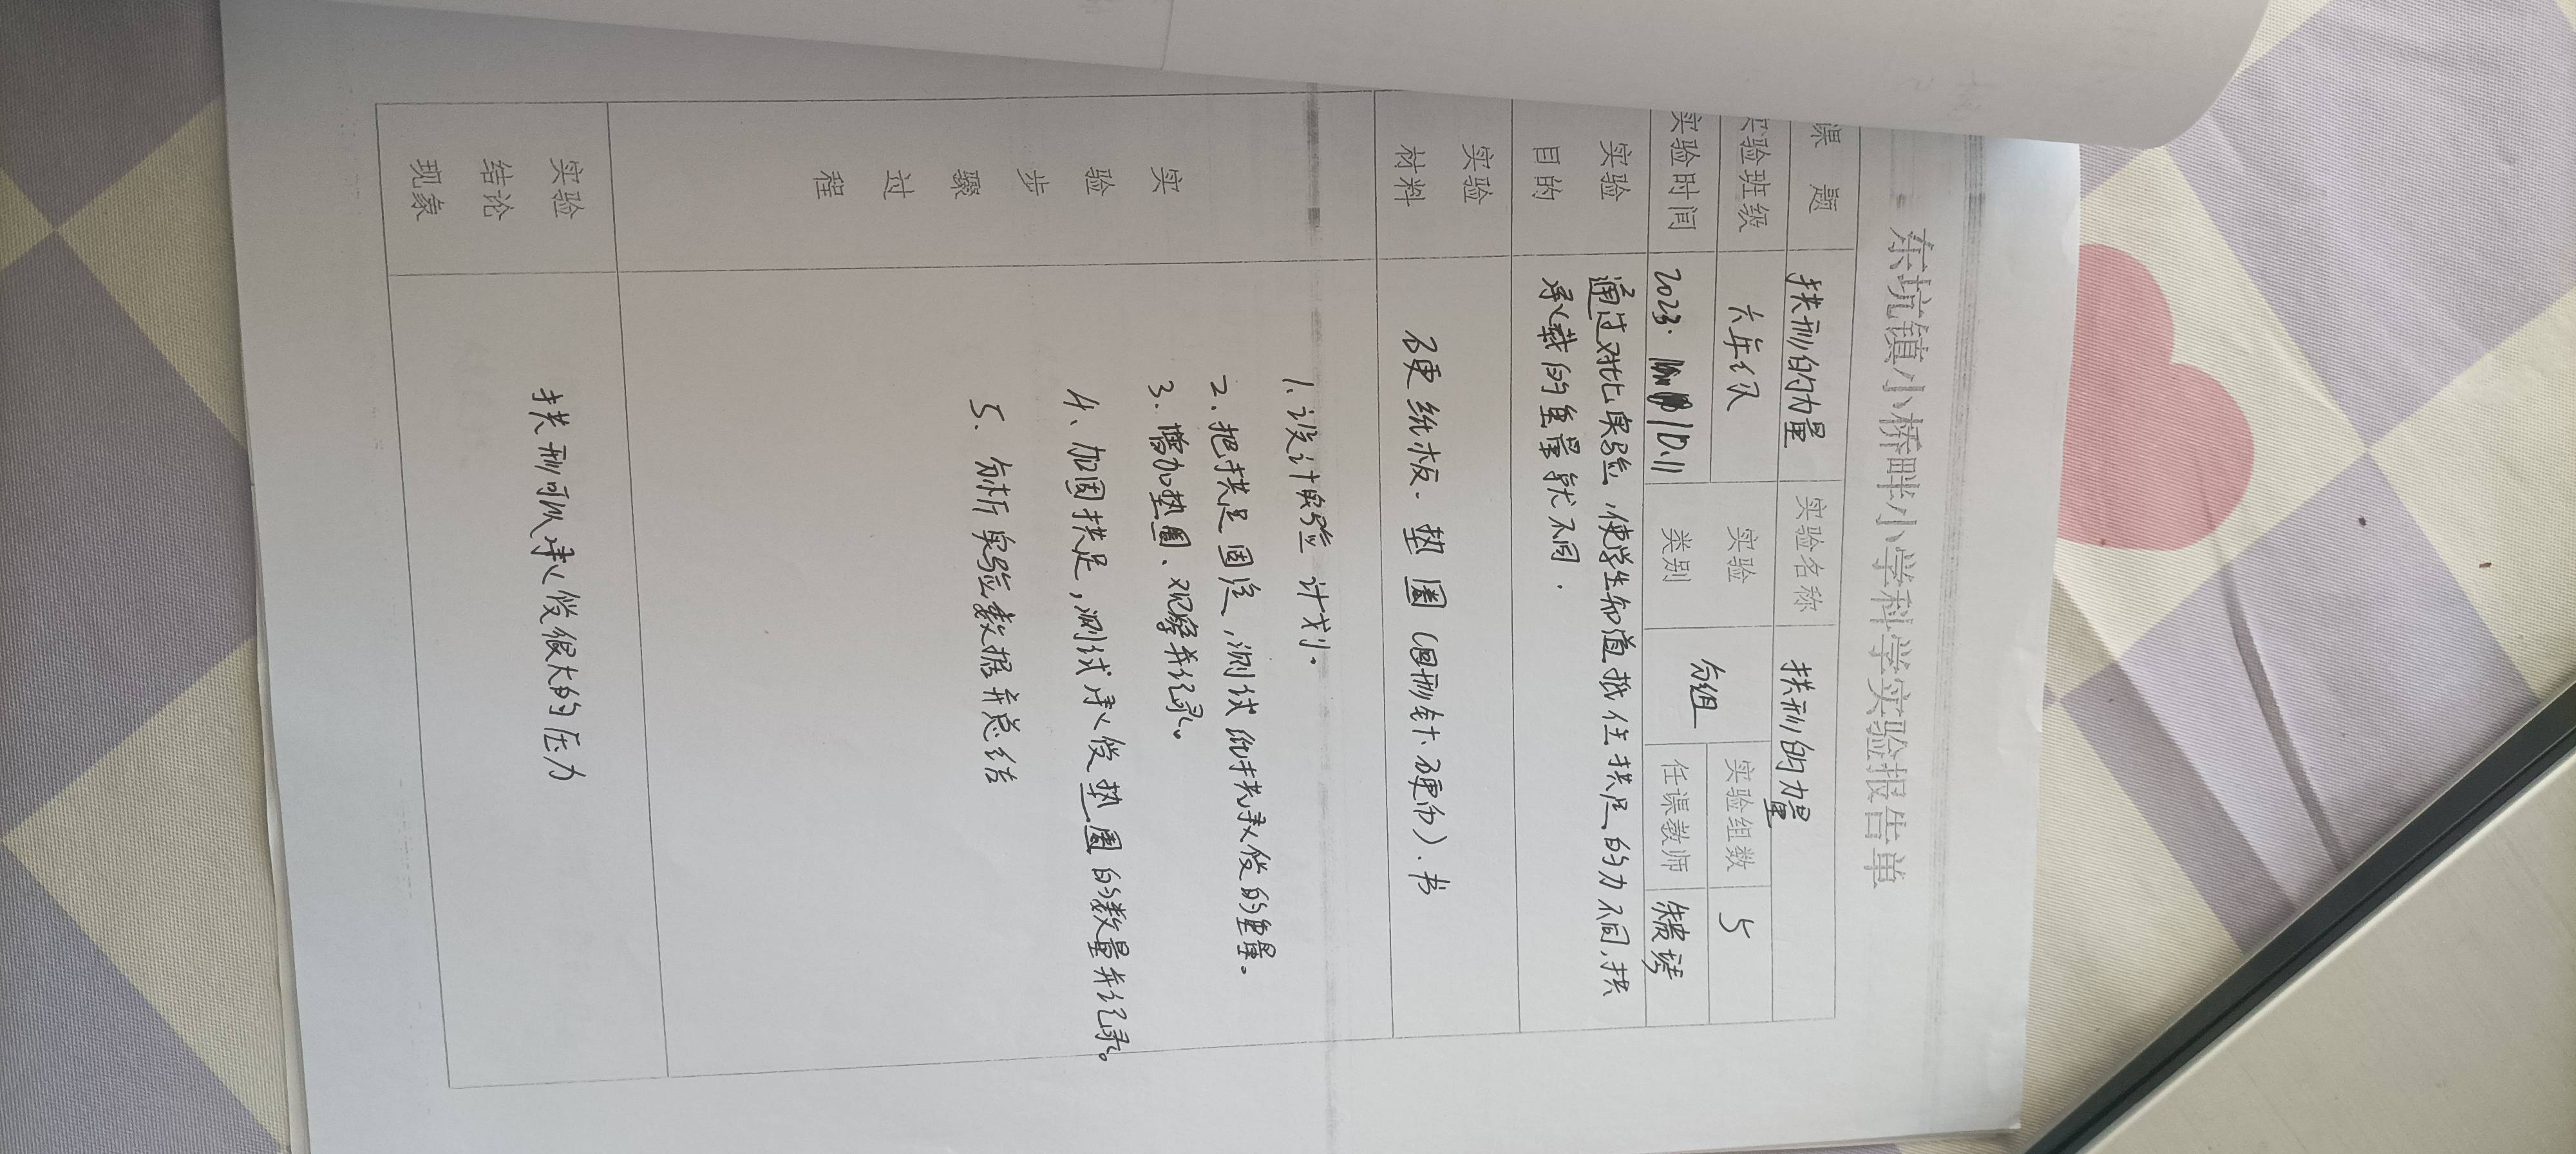 东坑镇小桥畔小学科学实验报告单
课 题 拱形的力量 实验名称 拱形的力量
实验班级 六年级 实验类别 分组 实验组数 5
实验时间 2023. 10.11 任课教师
实验目的 通过对比实验,使学生知道抵住拱足的力不同,拱
承载的重量就不同.
实验材料 硬纸板. 垫圈(回形针、硬币).书
实验步骤过程
1.设计实验计划.
2.把拱足固定,测试纸拱承受的重量。
3.增加垫圈、观察并记录。
4.加固拱足,测试承受垫圈的数量并记录。
5.分析实验数据并总结
实验结论现象 拱形可以承受很大的压力